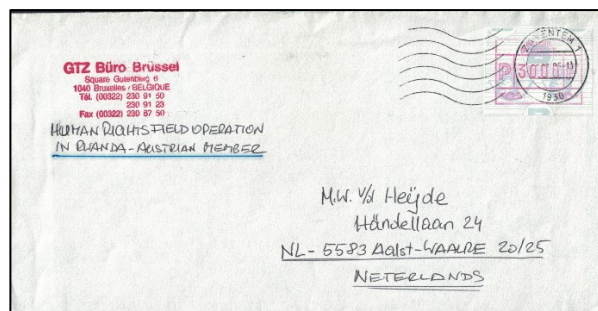 GTZ Büro Brüssel
Square Gutenberg 6
1040 Bruxelles / BELGIQUE
Tél. (00322) 230 91 50
230 91 23
Fax (00322) 230 87 50
HUMAN RIGHTS FIELD OPERATION
IN RWANDA - AUSTRIAN MEMBER
ZAVENTEM 1
P 30.00
1930
M.W. v/d Heÿde
Händellaan 24
NL - 5583 Aalst-WAALRE 20/25
NETERLANDS